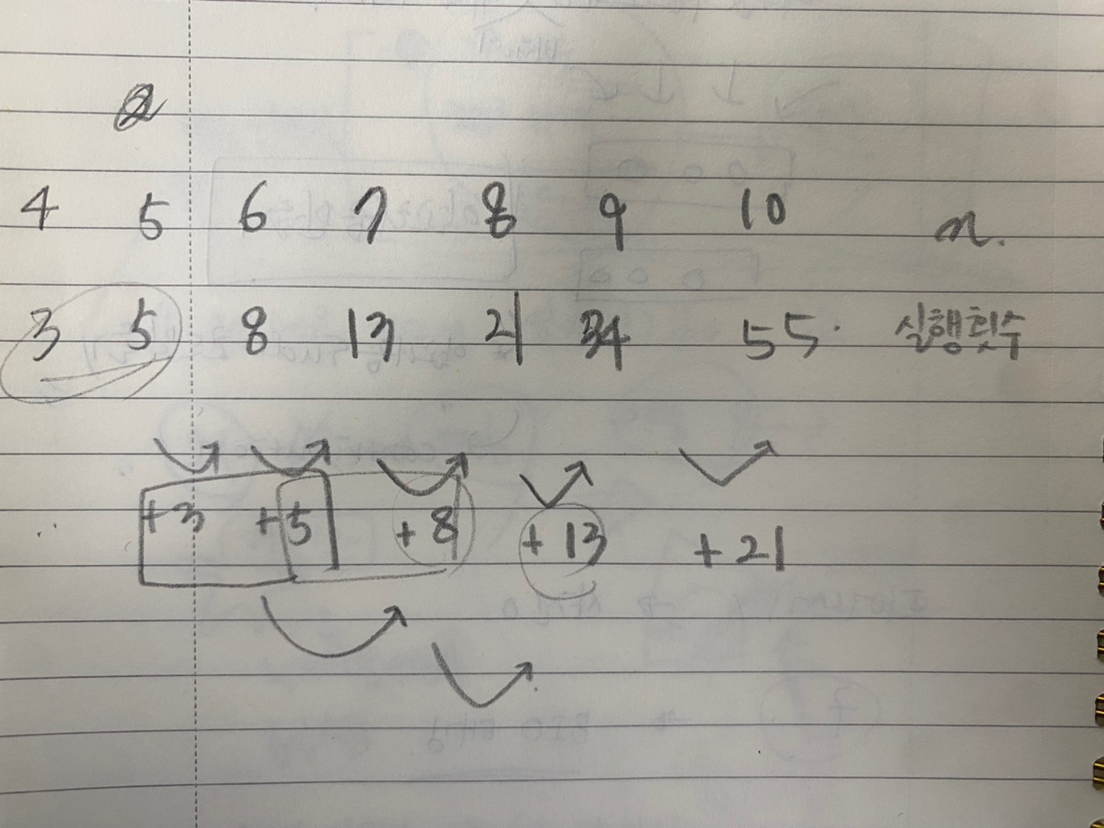 4 5 6 7 8 9 10 n.
3 5 8 13 21 34 55. 실행횟수
+3 +5 +8 +13 +21